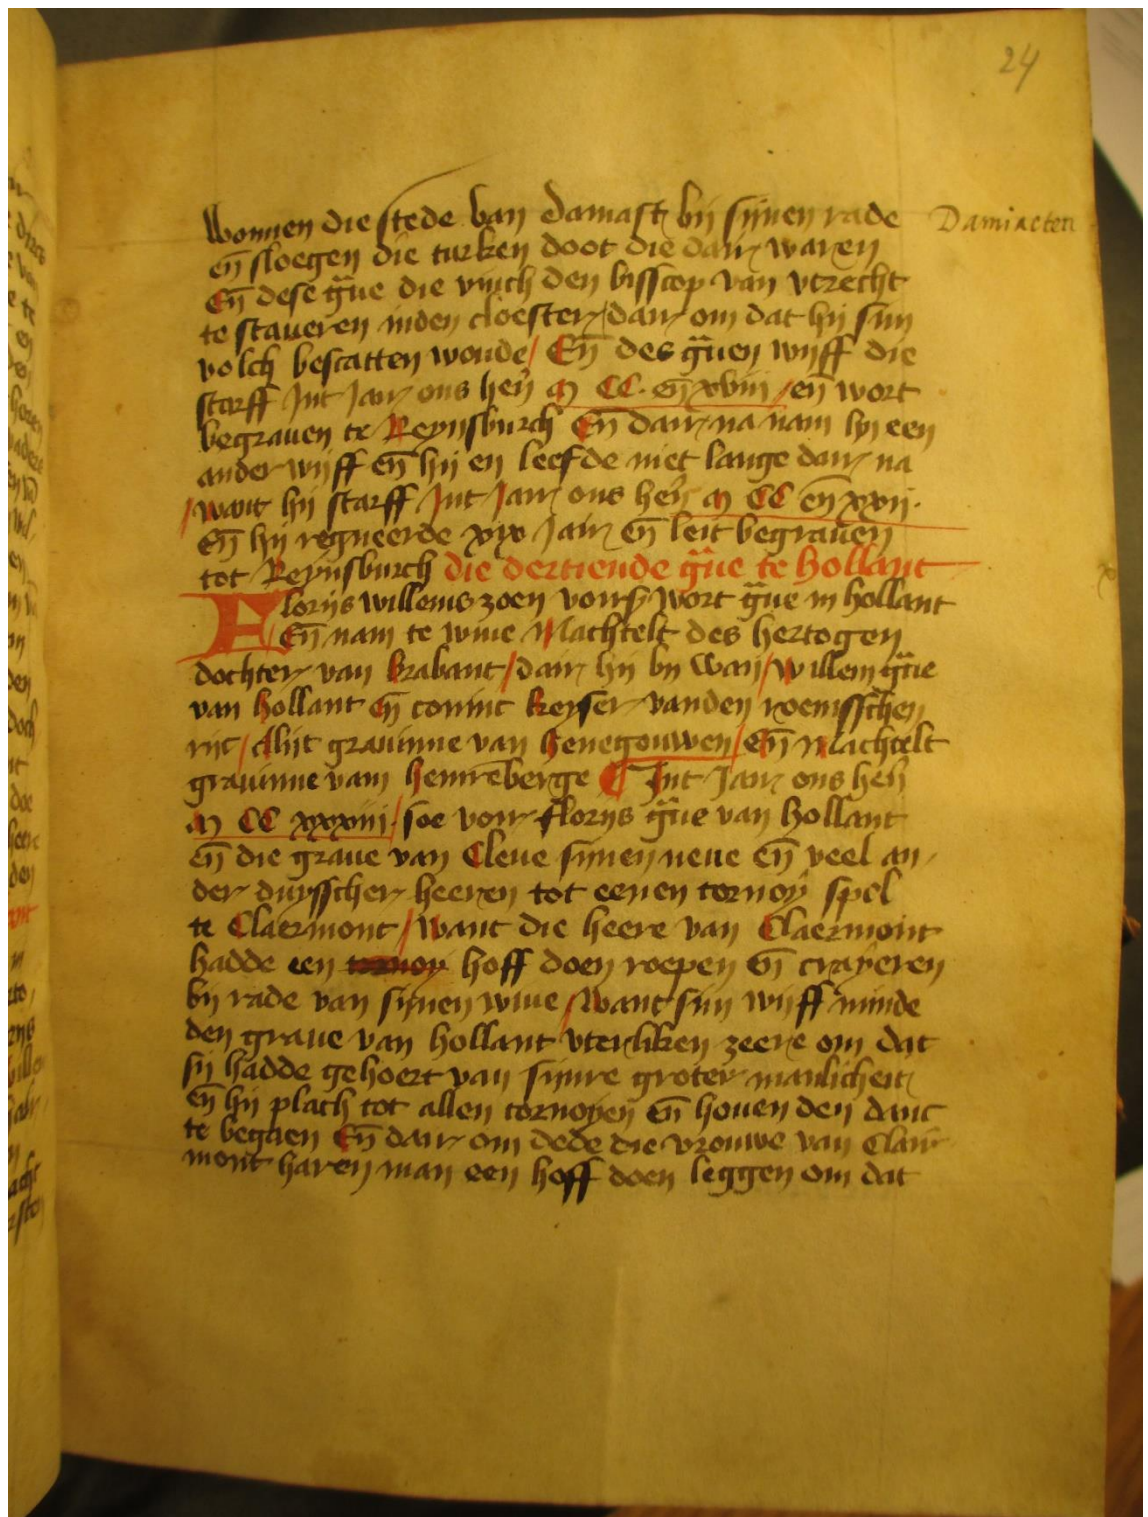 24
wonnen die stede van damast bij sijnen rade
Damiaeten
en̄ sloegen die turken doot die daer waren
En̄ dese g̃ue die vinch den bisscop van vtrecht
te staueren inden cloester daer om dat hij sijn
volch bescatten woude / En̄ des g̃uen wijff die
starff Int Jaer ons heῆ M CC. en̄ xviii / en̄ wort
begrauen te Reynsburch En̄ daer na nam hij een
ander wijff en̄ hij en leefde niet lange daer na
/ want hij starff Int Jaer ons heῆ M CC en̄ xxii.
En̄ hij regneerde xix Jaer en̄ leit begrauen
tot Reynsburch die dertiende g̃ue te hollant
Florijs willems zoen vors wort g̃ue in hollant
En̄ nam te wiue Machtelt des hertogen
dochter van brabant / daer hij bij wan / willem g̃ue
van hollant en̄ coninc keyser vanden roemsschen
rijc / Alijt grauinne van henegouwen / En̄ Machtelt
grauinne vam hennēberge Int Jaer ons heῆ
M CC xxxiiii / soe voer florijs g̃ue van hollant
en̄ die graue van Cleue sijnen neue en̄ veel an /
der duysscher heeren tot eenen tornoy spel
te Claermont / want die heere van Claermont
hadde een tornoy hoff doen roepen en̄ crayeren
bij rade van sijnen wiue / want sijn wijff minde
den graue van hollant vterliken zeere om dat
sij hadde gehoert van sijnre groter manlicheit
en̄ hij plach tot allen tornoyen en̄ houen den danc
te begaen En̄ daer om dede die vrouwe van Claer
mont haren man een hoff doen leggen om dat